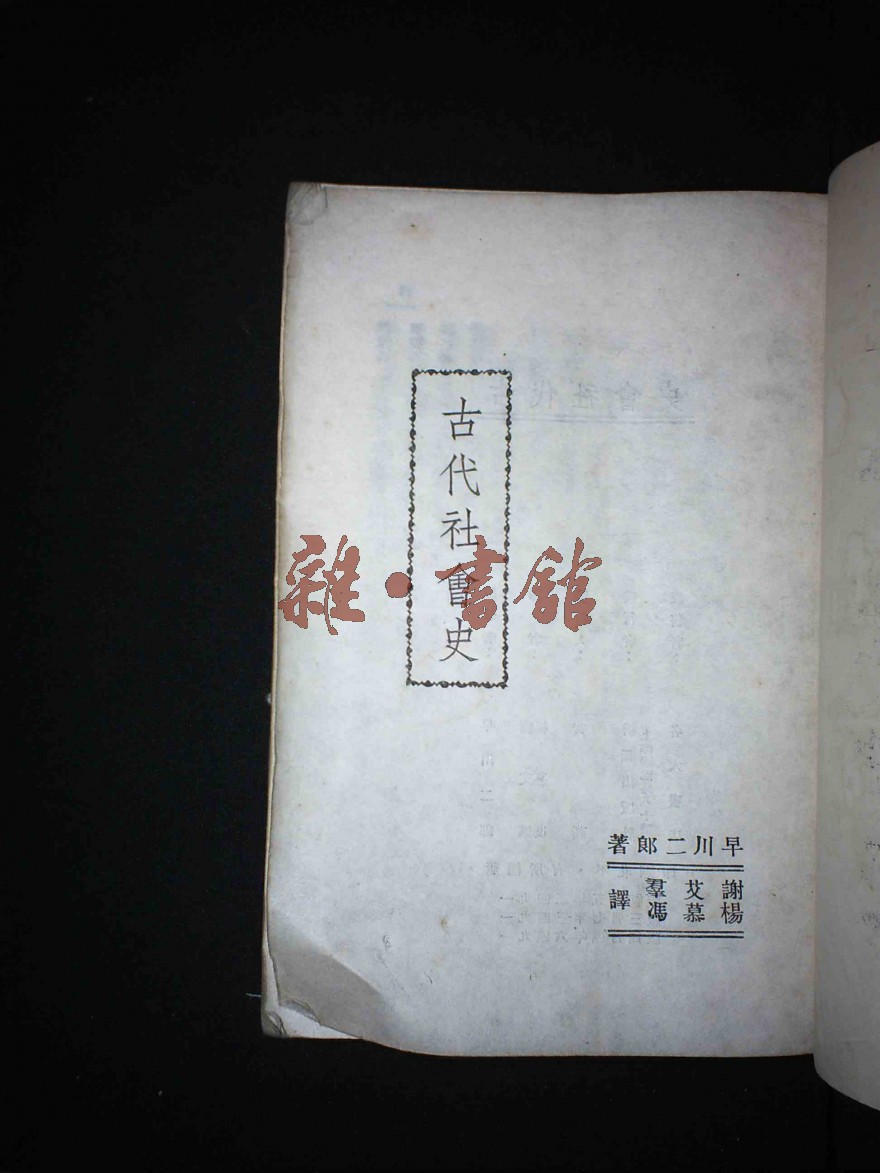 古代社會史
雜·書館
早川二郎著
謝艾羣
楊慕馮
譯